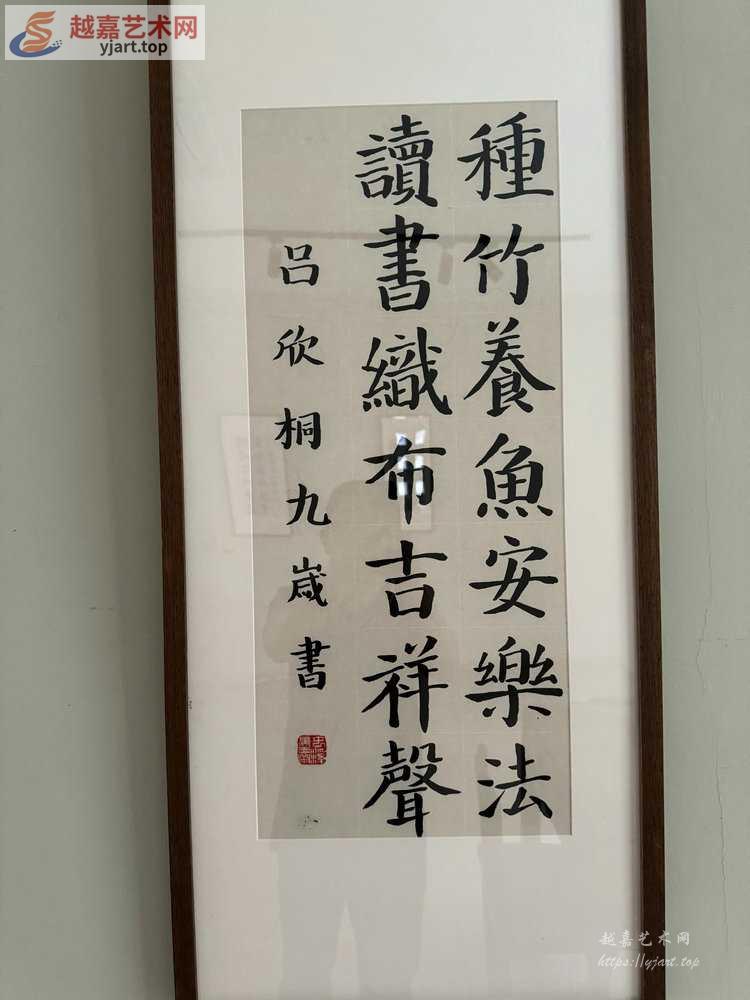 越嘉艺术网
yjart.top
種竹養魚安樂法
讀書織布吉祥聲
吕欣桐九歲書
越嘉艺术网
https://yjart.top